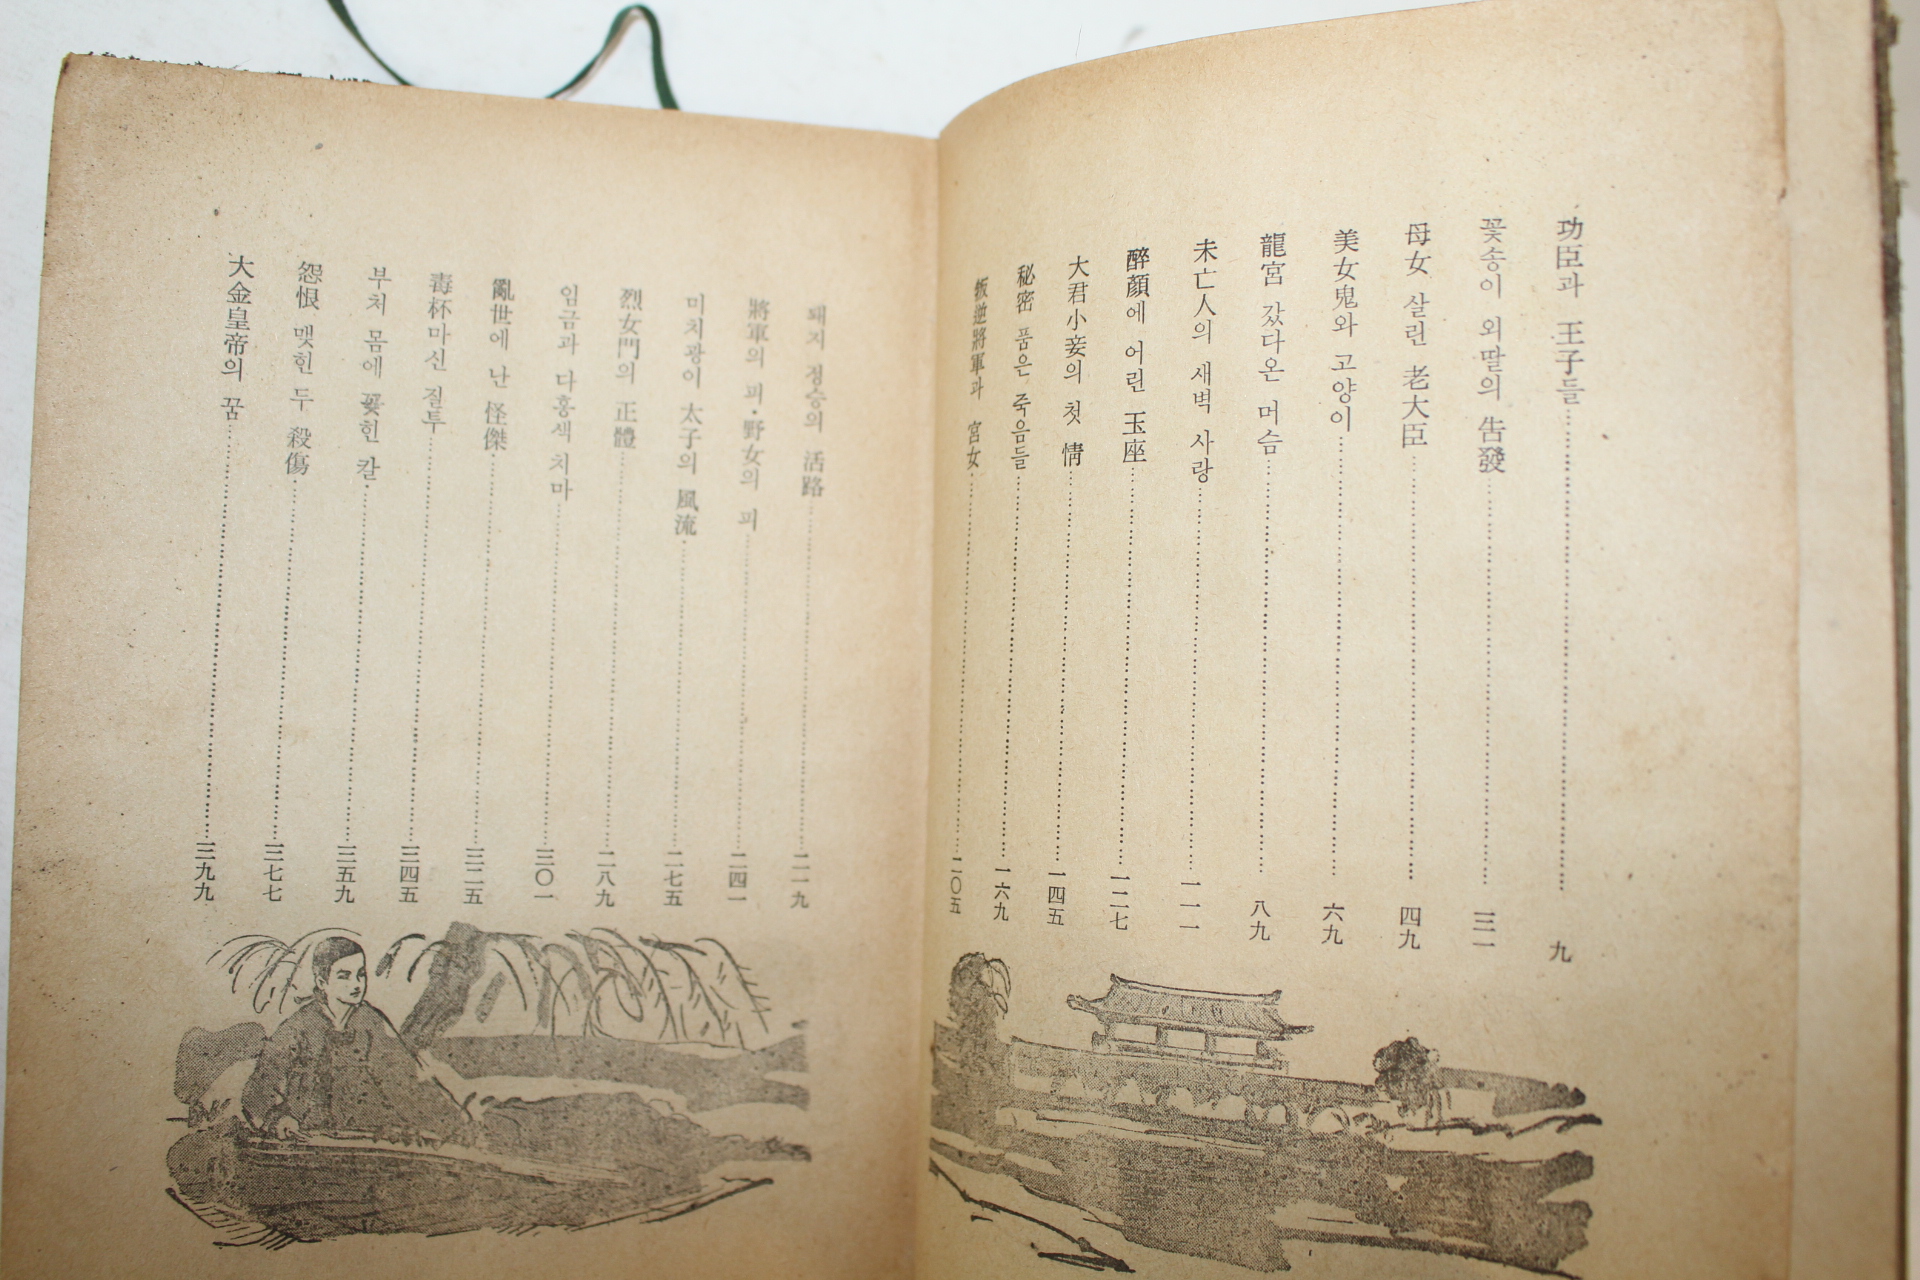 功臣과 王子들……九
꽃송이 외딸의 告發……三一
母女 살린 老大臣……四九
美女鬼와 고양이……六九
龍宮 갔다온 머슴……八九
未亡人의 새벽 사랑……一一一
醉顔에 어린 玉座……一二七
大君小妾의 첫 情……一四五
秘密 품은 죽음들……一六九
叛逆將軍과 宮女……二〇五
돼지 정승의 活路……二一九
將軍의 피·野女의 피……二四一
미치광이 太子의 風流……二七五
烈女門의 正體……二八九
임금과 다홍색 치마……三〇一
亂世에 난 怪傑……三二五
毒杯마신 질투……三四五
부처 몸에 꽂힌 칼……三五九
怨恨 맺힌 두 殺傷……三七七
大金皇帝의 꿈……三九九